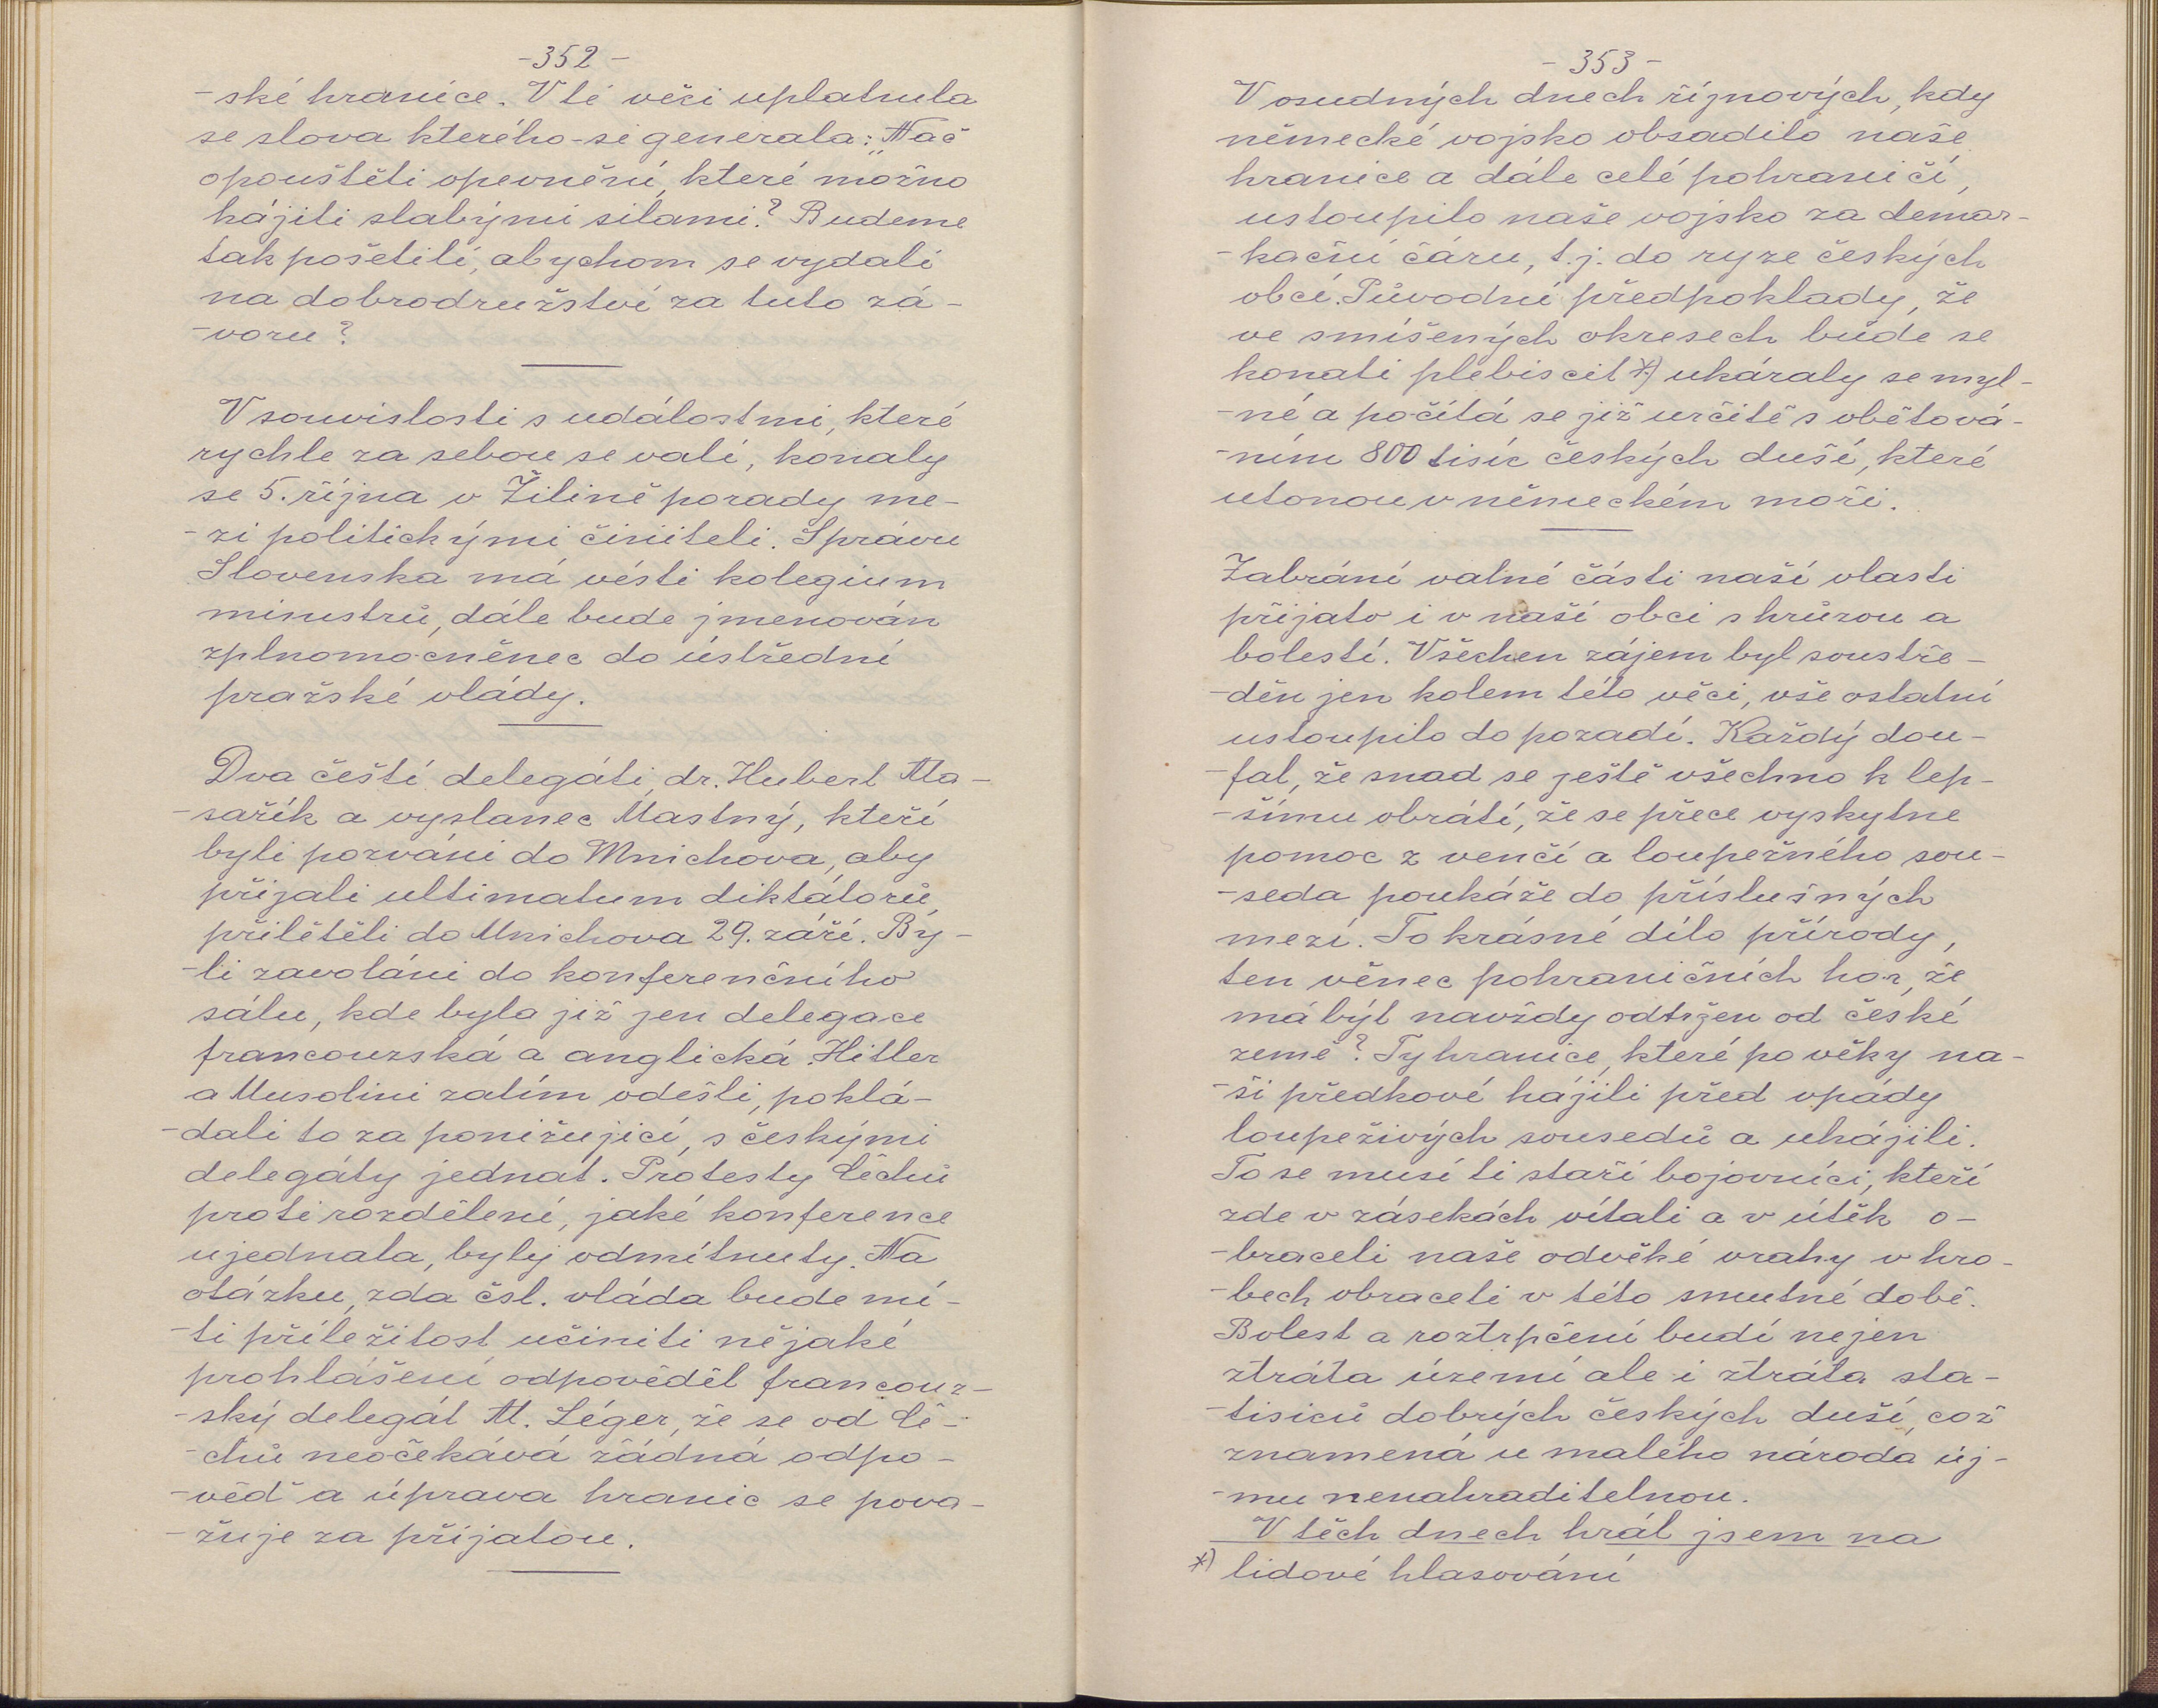 -352-
-ské hranice. V té věci uplatnula
se slova kterého-si generala: „Nač
opouštěti opevnění, které možno
hájiti slabými silami? Budeme
tak pošetilí, abychom se vydali
na dobrodružství za tuto zá-
-voru?
V souvislosti s událostmi, které
rychle za sebou se valí, konaly
se 5. října v Žilině porady me-
-zi politickými činiteli. Správu
Slovenska má vésti kolegium
ministrů, dále bude jmenován
zplnomocněnec do ústřední
pražské vlády.
Dva čeští delegáti, dr. Hubert Ma-
-sařík a vyslanec Mastný, kteří
byli pozváni do Mnichova, aby
přijali ultimatum diktátorů,
přilétěli do Mnichova 29. září. By-
-li zavoláni do konferenčního
sálu, kde byla již jen delegace
francouzská a anglická. Hitler
a Musolini zatím odešli, poklá-
-dali to za ponižující, s českými
delegáty jednat. Protesty Čechů
proti rozdělení, jaké konference
ujednala, byly odmítnuty. Na
otázku, zda čsl. vláda bude mí-
-ti příležitost učiniti nějaké
prohlášení odpověděl francouz-
-ský delegát M. Léger, že se od Če-
-chů neočekává žádná odpo-
-věď a úprava hranic se pova-
-žuje za přijatou.
-353-
V osudných dnech říjnových, kdy
německé vojsko obsadilo naše
hranice a dále celé pohraničí,
ustoupilo naše vojsko za demar-
-kační čáru, t.j. do ryze českých
obcí. Původní předpoklady, že
ve smíšených okresech bude se
konati plebiscit *) ukázaly se myl-
-né a počítá se již určitě s obětová-
-ním 800 tisíc českých duší, které
utonou v německém moři.
Zabrání valné části naší vlasti
přijato i v naší obci s hrůzou a
bolestí. Všechen zájem byl soustře-
-děn jen kolem této věci, vše ostatní
ustoupilo do pozadí. Každý dou-
-fal, že snad se ještě všechno k lep-
-šímu obrátí, že se přece vyskytne
pomoc z venčí a loupežného sou-
-seda poukáže do příslušných
mezí. To krásné dílo přírody,
ten věnec pohraničních hor, že
má být navždy odtržen od české
země? Ty hranice, které po věky na-
-ši předkové hájili před vpády
loupeživých sousedů a uhájili.
To se musí ti staří bojovníci, kteří
zde v zásekách vítali a v útěk o-
-braceli naše odvěké vrahy v hro-
-bech obraceti v této smutné době.
Bolest a roztrpčení budí nejen
ztráta území ale i ztráta sta-
-tisiců dobrých českých duší, což
znamená u malého národa új-
-mu nenahraditelnou.
V těch dnech hrál jsem na
*) lidové hlasování